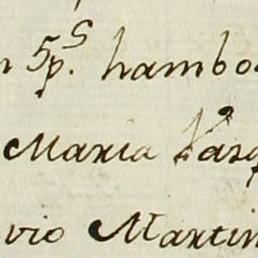 5p.s hambo
Maria Vasq
vio Martin